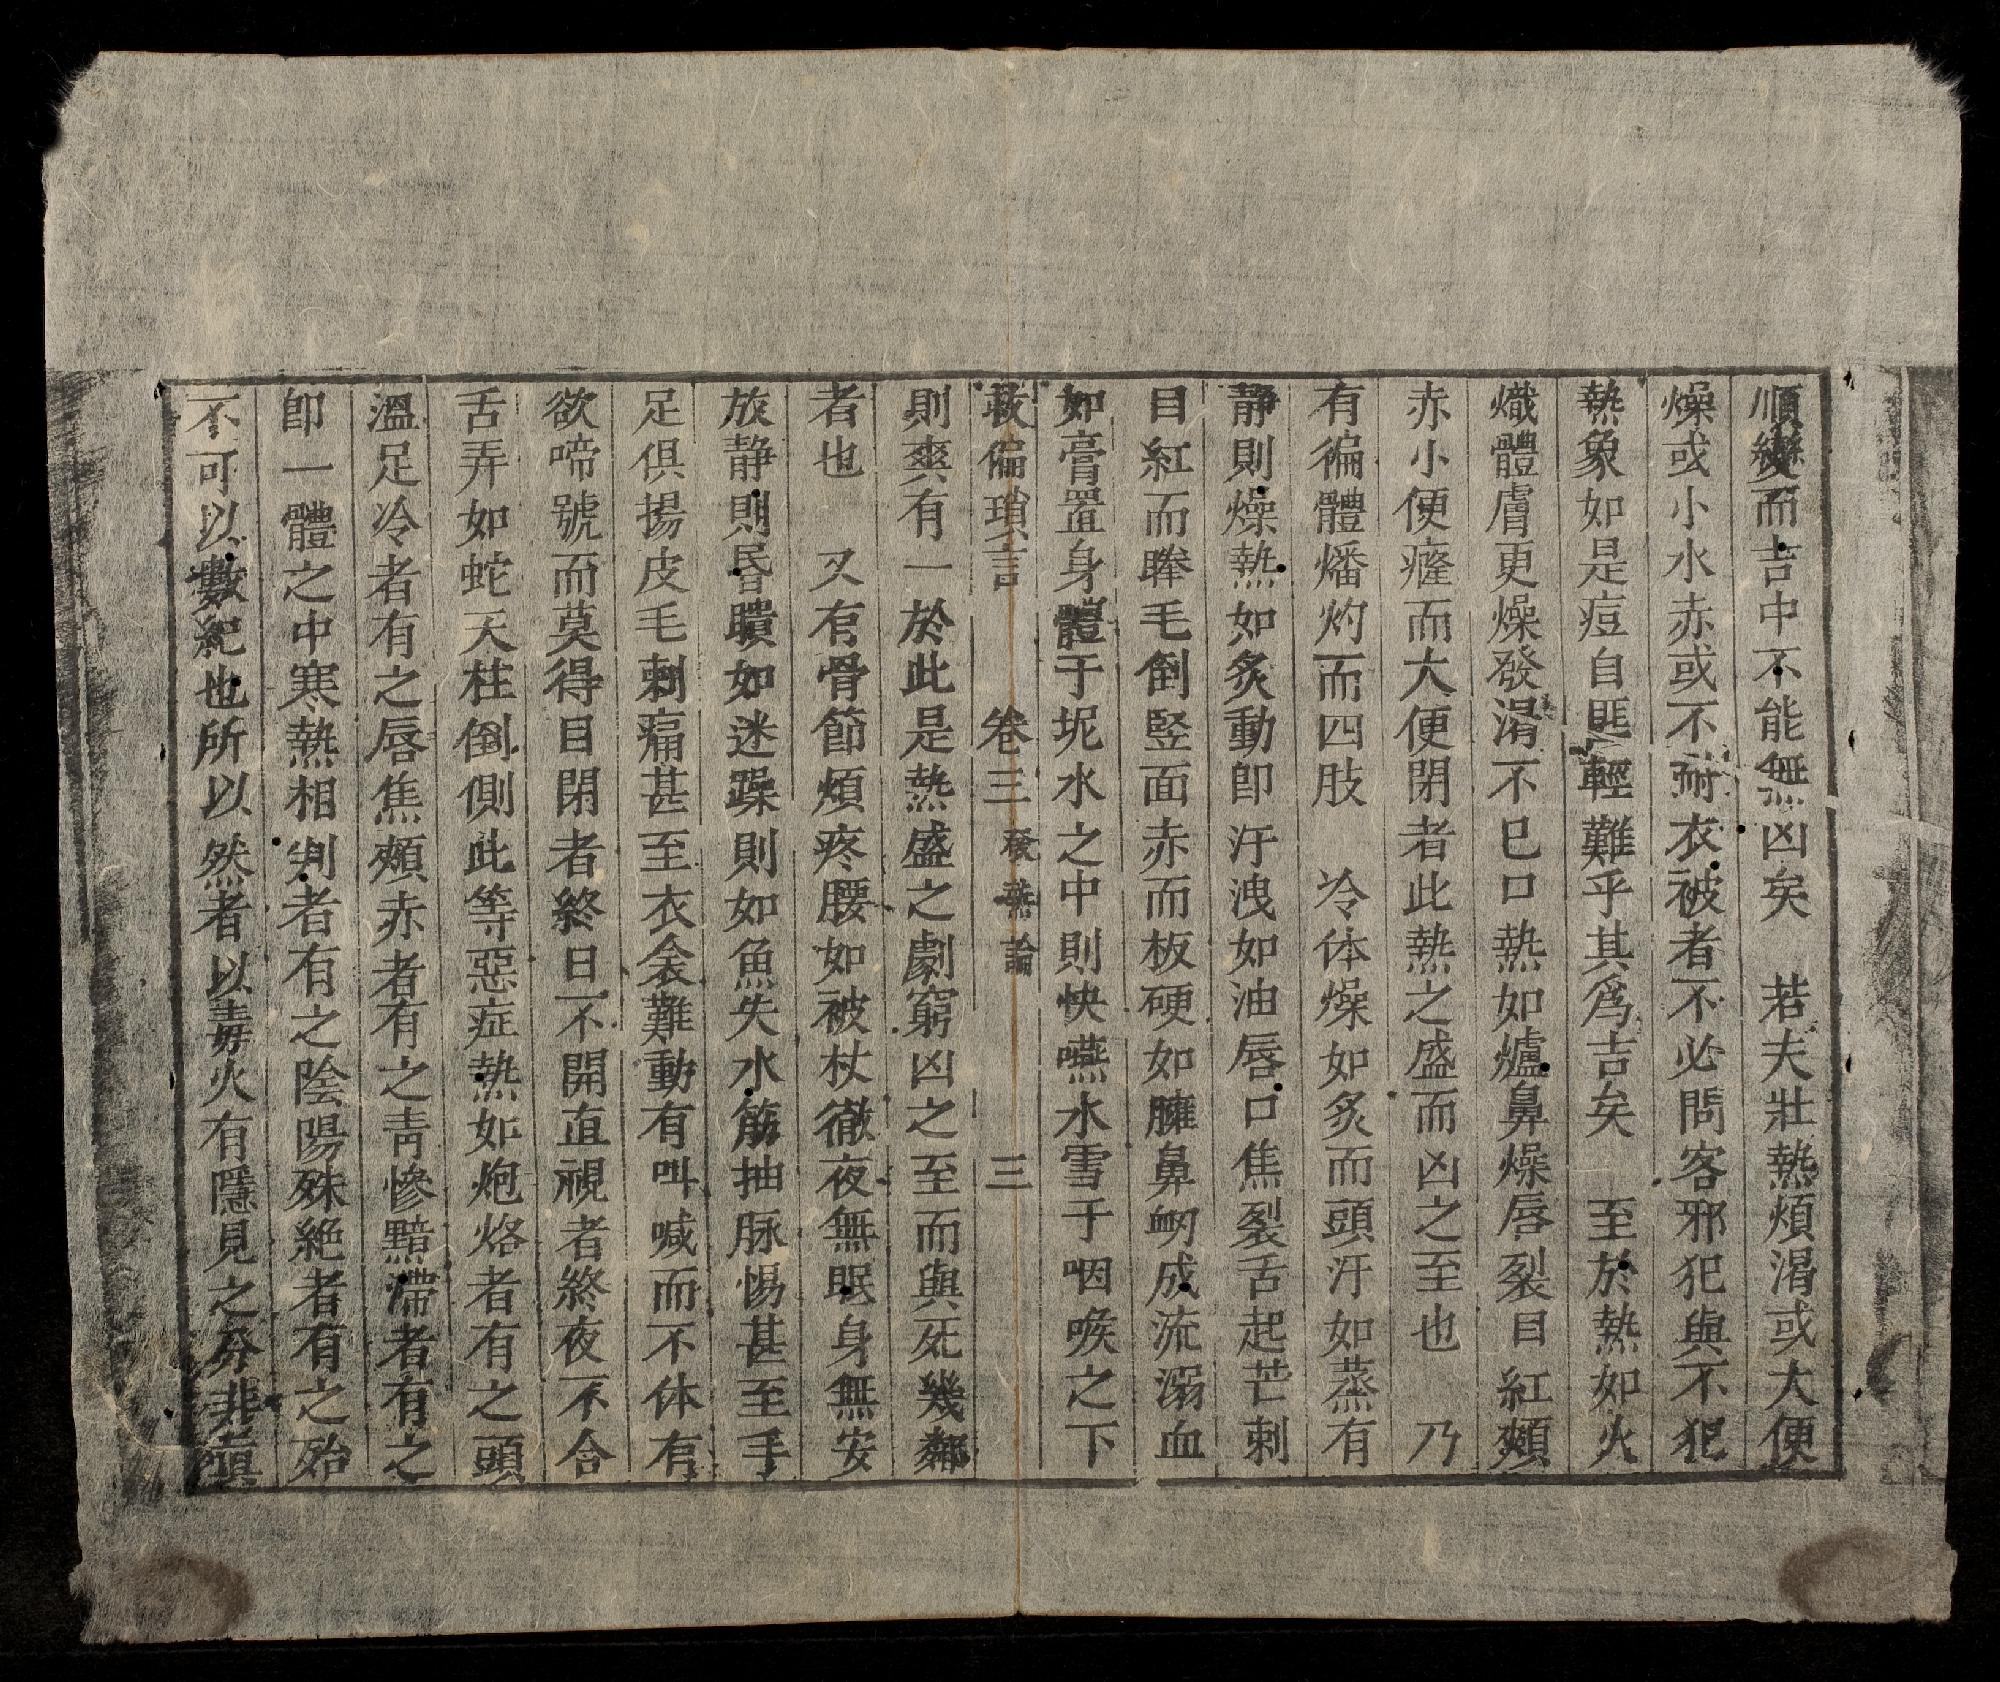 順變而吉中不能無凶矣　若夫壯熱煩渴或大便
燥或小水赤或不耐衣被者不必問客邪犯與不犯
熱象如是痘自匪輕難乎其爲吉矣　至於熱如火
熾體膚更燥發渴不已口熱如爐鼻燥唇裂目紅頰
赤小便癃而大便閉者此熱之盛而凶之至也　乃
有徧體燔灼而四肢　冷体燥如炙而頭汗如蒸有
静則燥熱如炙動卽汗洩如油唇口焦裂舌起芒刺
目紅而睠毛倒竪面赤而板硬如臃鼻衂成流溺血
如膏置身體于坭水之中則快嚥水雪于咽喉之下
救偏瑣言　卷三　發熱論　三
則爽有一於此是熱盛之劇窮凶之至而與死幾鄰
者也　又有骨節煩疼腰如被杖徹夜無眠身無安
放静則昏瞶如迷躁則如魚失水筋抽脉惕甚至手
足俱揚皮毛刺痛甚至衣衾難動有叫喊而不休有
欲啼號而莫得目閉者終日不開直視者終夜不合
舌弄如蛇天柱倒側此等惡症熱如炮烙者有之頭
溫足冷者有之唇焦頰赤者有之靑慘黯滯者有之
卽一體之中寒熱相判者有之陰陽殊絶者有之殆
不可以數紀也所以然者以毒火有隱見之分非眞